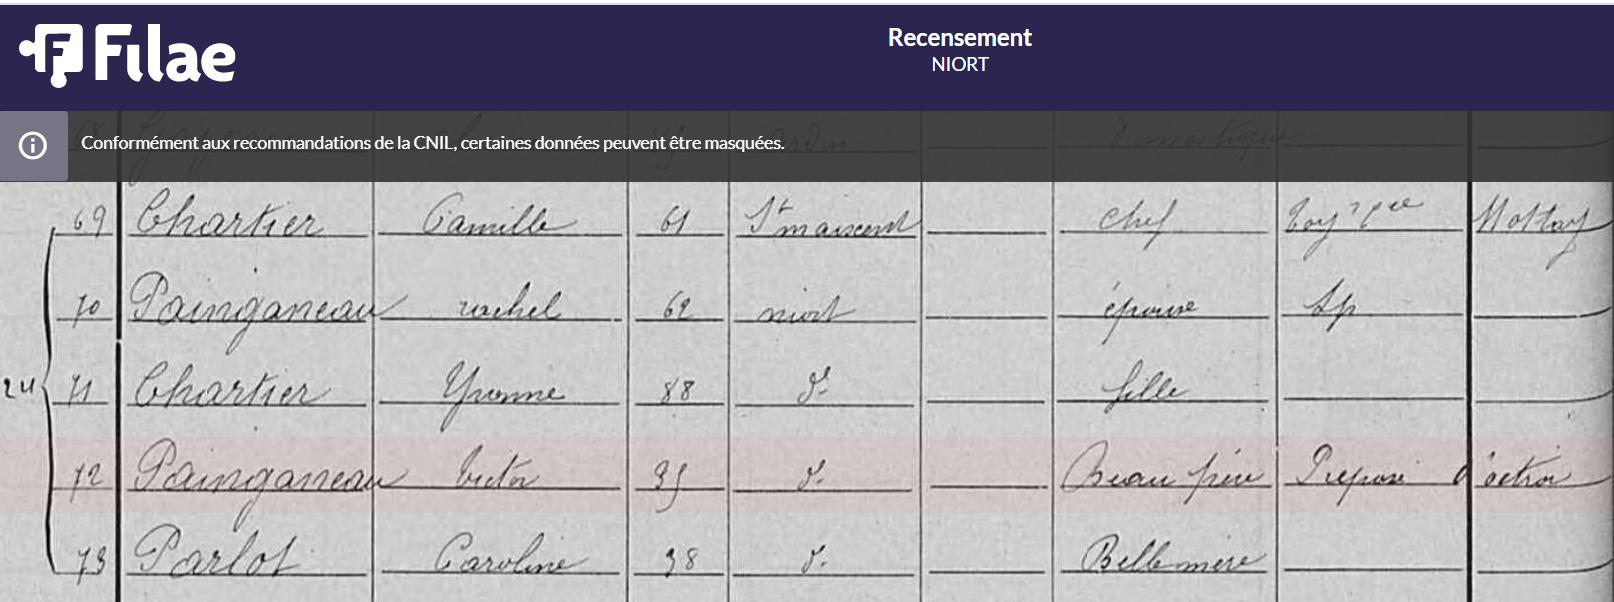 Filae
Recensement
NIORT
Conformément aux recommandations de la CNIL, certaines données peuvent être masquées.
Domestique
69 Chartier Camille 61 St maixent chef
70 Painganeau rachel 62 niort épouse Sp
71 Chartier Yvonne 88 d° fille
24
72 Painganeau Victor 35 d° Beau père Préposé d'octroi
73 Parlot Caroline 38 d° Belle mère